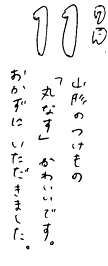 11
山形のつけもの
「丸なす」かわいいです。
おかずにいただきました。